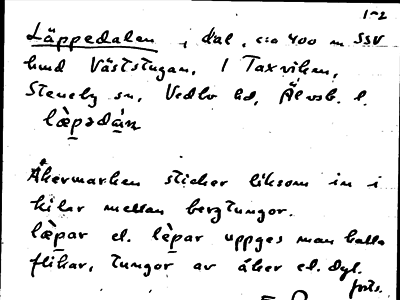 1-2
Läppedalen, dal, c:a 400 m SSV
hmd Väststugan, 1 Taxviken,
Steneby sn, Vedbo hd, Älvsb. l.
læ̀pədán
Åkermarken sticker liksom in i
kilar mellan bergtungor.
læ̀par el. lèpar uppges man kalla
flikar, tungor av åker el. dyl.
forts.